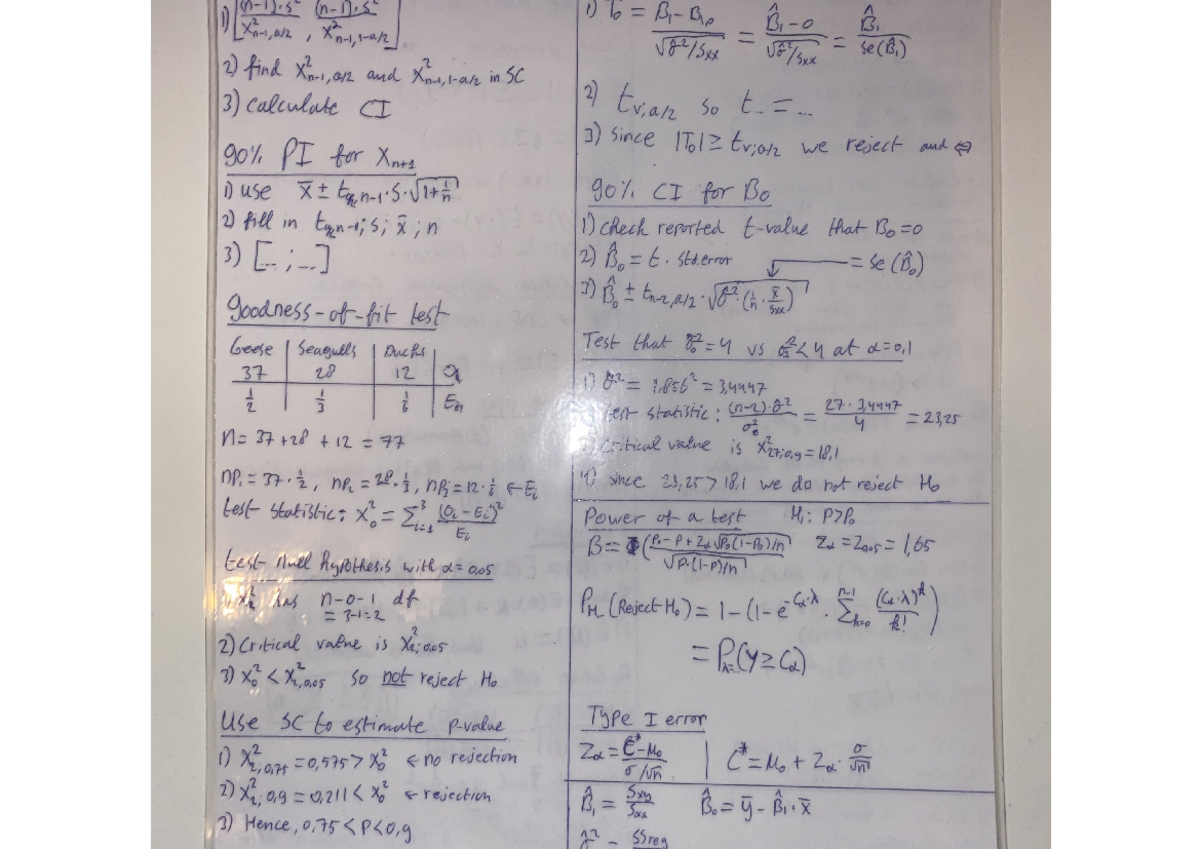 1) [(n-1)·s² / X²n-1,a/2 , (n-1)·s² / X²n-1,1-a/2]
2) find X²n-1,a/2 and X²n-1,1-a/2 in SC
3) Calculate CI
90% PI for Xn+1
1) use x̄ ± tα/2,n-1·s·√(1+1/n)
2) fill in tα/2,n-1; s; x̄; n
3) [... ; ...]
Goodness-of-fit test
Geese | Seagulls | Ducks
37 | 28 | 12 | Oi
1/2 | 1/3 | 1/6 | Ei
n = 37+28+12 = 77
np₁ = 37·1/2, np₂ = 28·1/3, np₃ = 12·1/6 ← Ei
test statistic: X²₀ = Σ³i=1 (Oi-Ei)²/Ei
test null hypothesis with α=0.05
1) X²₂ has n-0-1 df
= 3-1=2
2) Critical value is X²2;0.05
3) X²₀ < X²2,0,05 so not reject H₀
Use SC to estimate p-value
1) X²2;0,75 = 0,575 > X²₀ ← no rejection
2) X²2;0,9 = 0,211 < X²₀ ← rejection
3) Hence, 0,75 < P < 0,9
1) T₀ = B̂₁-B₁,₀ / √(σ̂²/Sxx) = B̂₁-0 / √(σ̂²/Sxx) = B̂₁ / se(B̂₁)
2) tv;a/2 so t... = ...
3) Since |T₀| ≥ tv;a/2 we reject and ⇔
90% CI for B₀
1) Check reported t-value that B₀=0
2) B̂₀ = t · std.error = se(B̂₀)
3) B̂₀ ± tn-2,a/2 · √(σ̂²·(1/n · x̄/Sxx))
Test that σ²₀=4 vs σ²<4 at α=0,1
1) σ̂² = 1.856² = 3,4447
test statistic: (n-2)·σ̂²/σ²₀ = 27·3,4447/4 = 23,25
3) Critical value is X²27;0,9 = 18,1
4) since 23,25 > 18,1 we do not reject H₀
Power of a test H₁: P>P₀
B = Φ(P₀-P+Zα√(P₀(1-P₀)/n) / √(P·(1-P)/n)) Zα = Z0.05 = 1,65
PH₁(Reject H₀) = 1-(1-e^-Cα·λ · Σn-1k=0 (Cα·λ)^k/k!)
= Pλ=..(Y ≥ Cα)
Type I error
Zα = C*-M₀ / σ/√n | C* = M₀ + Zα · σ/√n
B̂₁ = Sxy/Sxx B̂₀ = ȳ - B̂₁·x̄
σ̂² = SSreg